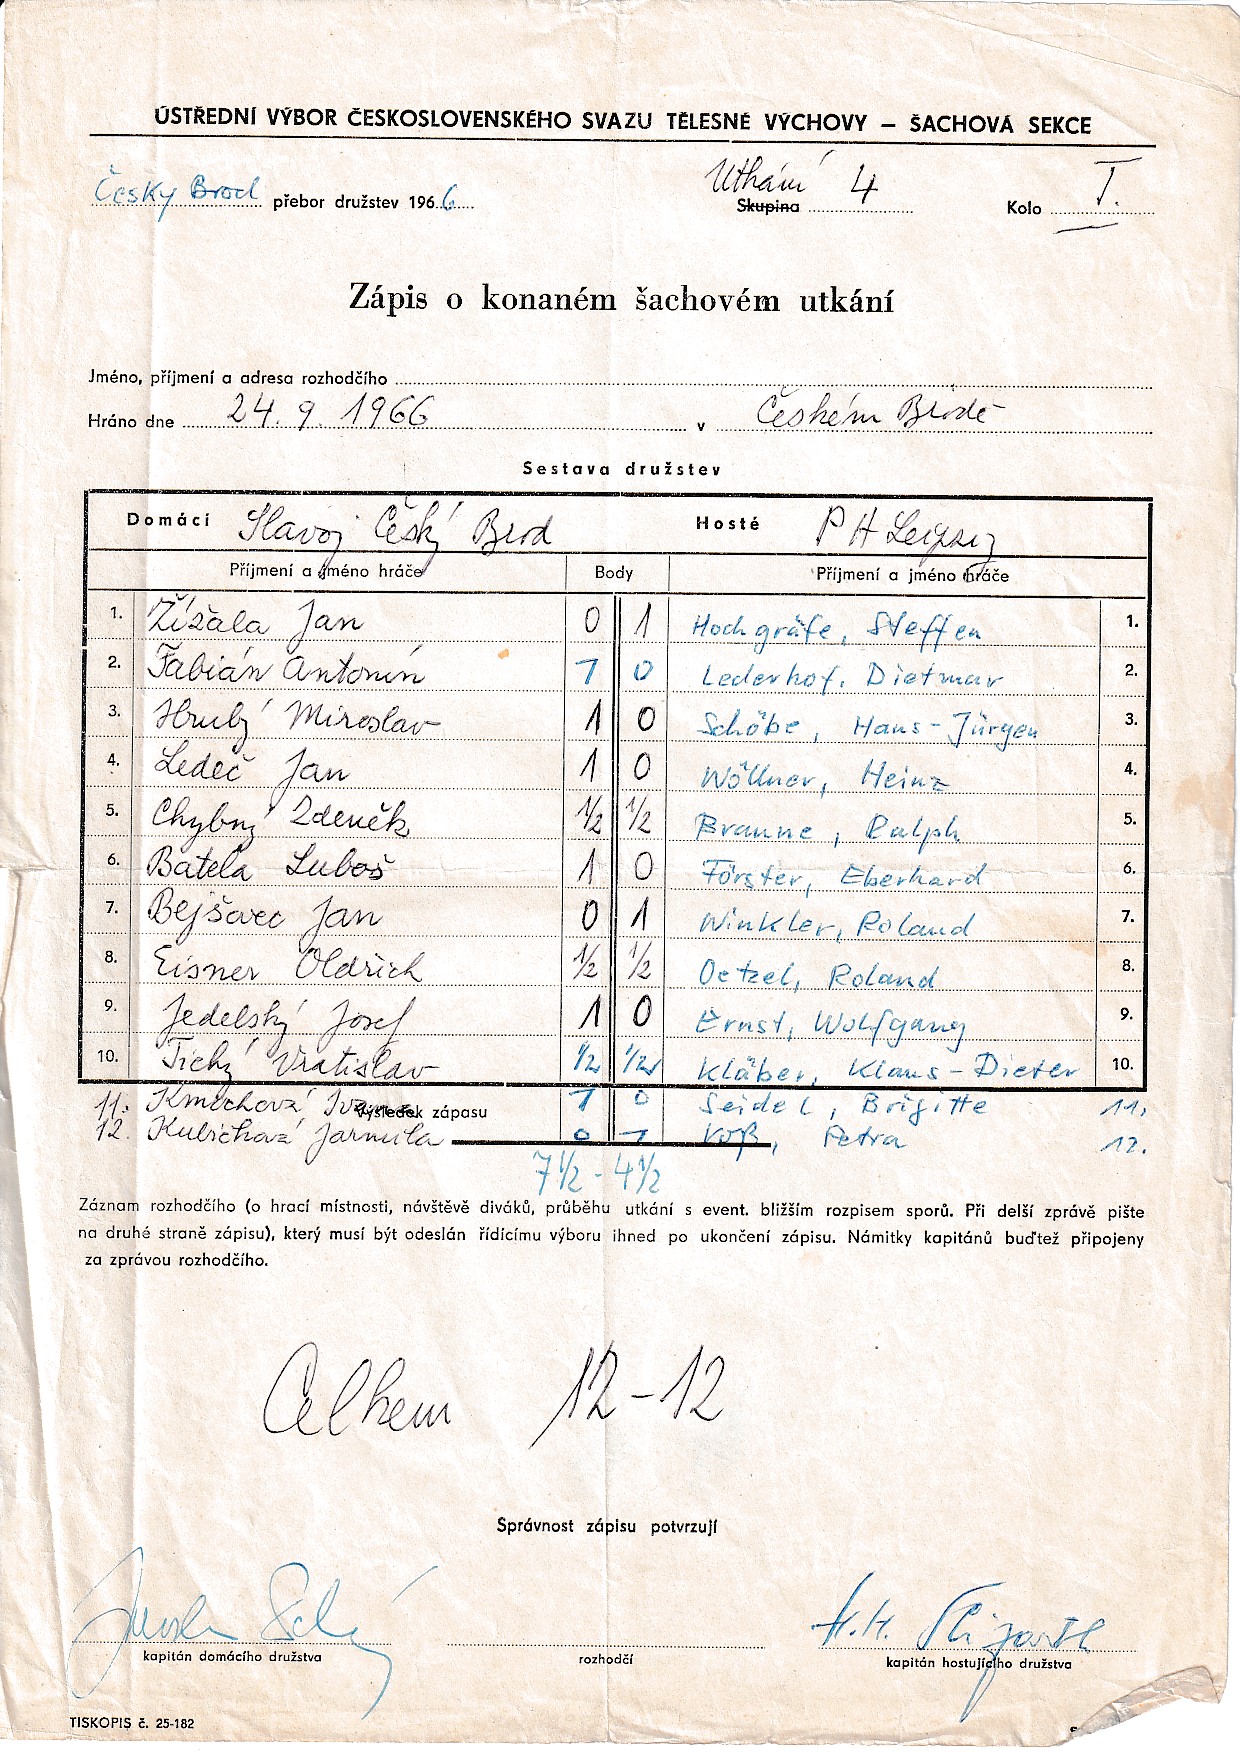 ÚSTŘEDNÍ VÝBOR ČESKOSLOVENSKÉHO SVAZU TĚLESNÉ VÝCHOVY – ŠACHOVÁ SEKCE
Česky Brod přebor družstev 1966 Utkání 4 Kolo I.
Skupina
Zápis o konaném šachovém utkání
Jméno, příjmení a adresa rozhodčího
Hráno dne 24. 9. 1966 v Českém Brodě
Sestava družstev
Domácí Slavoj Český Brod Hosté PH Leipzig
Příjmení a jméno hráče Body Příjmení a jméno hráče
1. Žížala Jan 0 1 Hochgräfe, Steffen 1.
2. Fabián Antonín 1 0 Lederhof, Dietmar 2.
3. Hrubý Miroslav 1 0 Schöbe, Hans-Jürgen 3.
4. Ledeč Jan 1 0 Wöllner, Heinz 4.
5. Chybný Zdeněk 1/2 1/2 Braune, Ralph 5.
6. Batela Luboš 1 0 Förster, Eberhard 6.
7. Bejšovec Jan 0 1 Winkler, Roland 7.
8. Eisner Oldřich 1/2 1/2 Oetzel, Roland 8.
9. Jedelský Josef 1 0 Ernst, Wolfgang 9.
10. Tichý Vratislav 1/2 1/2 Kläber, Klaus-Dieter 10.
11. Kmochová 1 0 Seidel, Brigitte 11.
Výsledek zápasu
12. Kubíchová Jarmila 0 1 Voß, Petra 12.
7 1/2 - 4 1/2
Záznam rozhodčího (o hrací místnosti, návštěvě diváků, průběhu utkání s event. bližším rozpisem sporů. Při delší zprávě pište
na druhé straně zápisu), který musí být odeslán řídícímu výboru ihned po ukončení zápisu. Námitky kapitánů buďtež připojeny
za zprávou rozhodčího.
Celkem 12-12
Správnost zápisu potvrzují
H.H.
kapitán domácího družstva rozhodčí kapitán hostujícího družstva
TISKOPIS č. 25-182